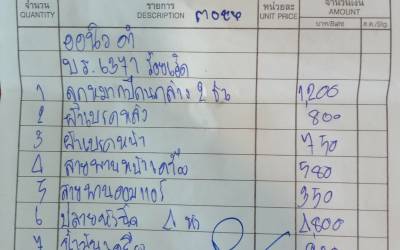 จำนวน QUANTITY รายการ DESCRIPTION หน่วยละ UNIT PRICE จำนวนเงิน AMOUNT
บาท/Baht ส.ต./Stg.
ออนิว ดำ
บธ.6371 ร้อยเอ็ด
1 ลูกหมากปีกนกล่าง 2 ชิ้น 1,200
2 ผ้าเบรคหลัง 800
3 ผ้าเบรคหน้า 750
4 สายพานหน้าเครื่อง 580
5 สายพานคอมแอร์ 350
6 ปลายหัวฉีด 4 หัว 4800
7